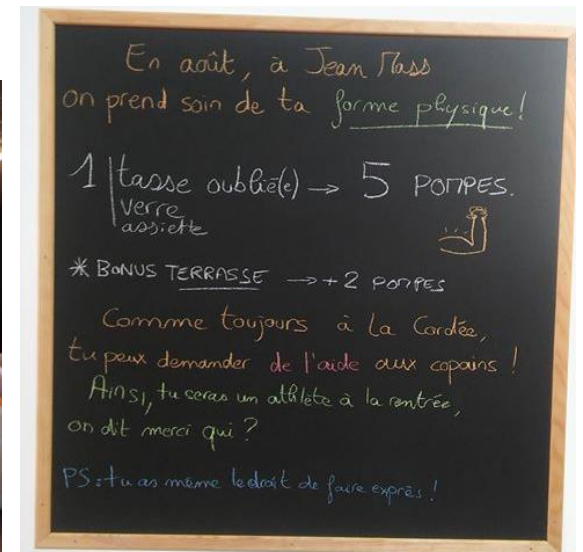 En août, à Jean Mass
on prend soin de ta forme physique!
1 tasse oublié(e) → 5 POMPES.
verre
assiette
* BONUS TERRASSE → +2 POMPES
Comme toujours à la Cordée,
tu peux demander de l'aide aux copains !
Ainsi, tu seras un athlète à la rentrée,
on dit merci qui ?
PS: tu as même le droit de faire exprès !